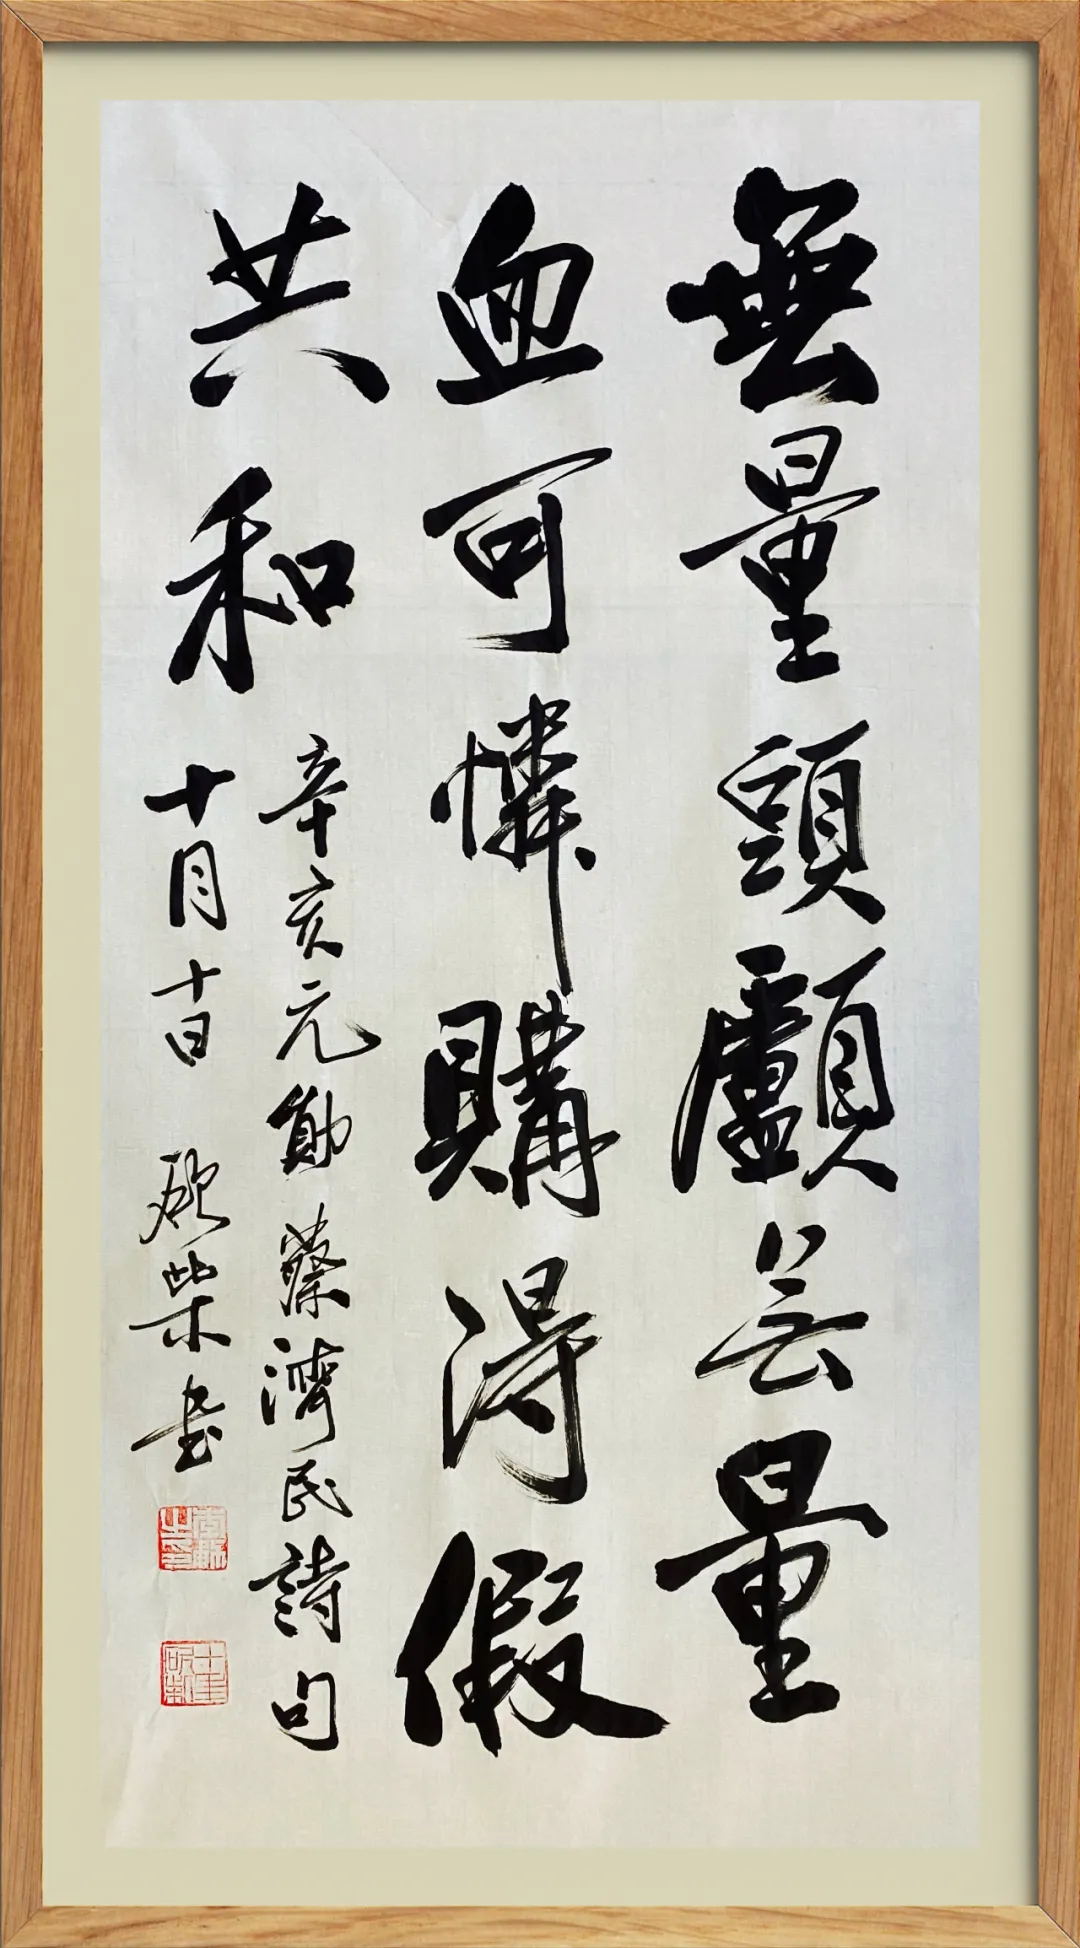 無量頭顱無量
血可憐購得假
共和
辛亥元勛蔡濟民詩句
十月十日 柴書